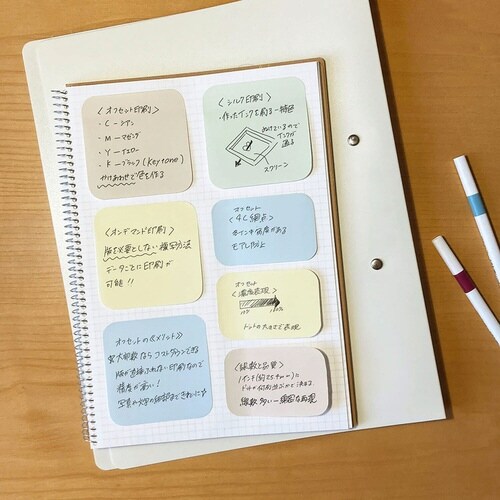 〈オフセット印刷〉
・C ー シアン
・M ー マゼンダ
・Y ー イエロー
・K ー ブラック (Keytone)
かけあわせで色を作る
〈シルク印刷〉
・作ったインクを刷る 一 特色
ぬけているので
インクが
通る
スクリーン
〈オンデマンド印刷〉
版を必要としない 複写方法
データごとに印刷が
可能!!
オフセット
〈4C 網点〉
各インキ角度がある
モアレ防止
オフセット
〈濃度表現〉
10% 100%
ドットの大きさで表現
オフセットの《メリット》
大部数ならコストダウンできる
版が直接ふれない印刷なので
精度が高い!
写真や文字の細部まできれいに
〈線数と品質〉
1インチ(約2.54cm)に
ドットが何列並ぶかで決まる
線数多い ー 綿密な表現